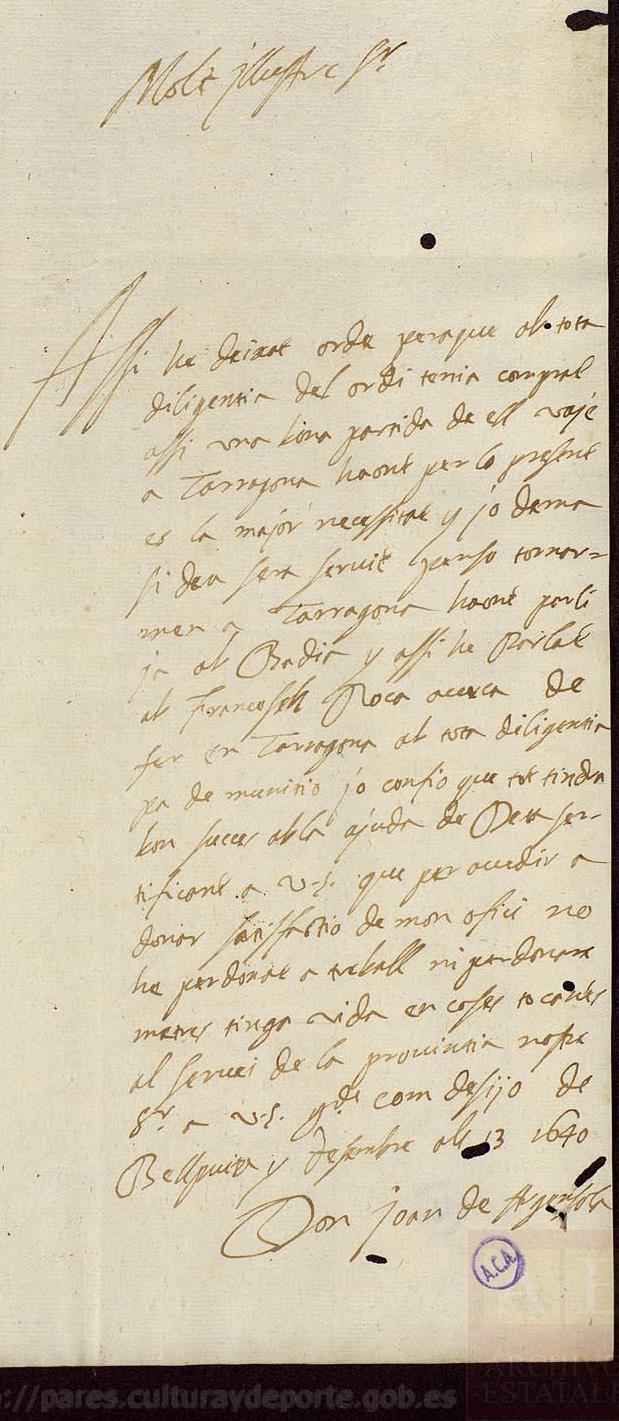 Molt jllustre Sr
Assi he deixat orde peraque ab tota
diligentia del ordi tenia comprat
assi vna bona partida de ell vaje
a Tarragona haont per lo present
es la major necessitat y jo dema
si deu sera servit penso tornar=
men a Tarragona haont parli
ja ab Badia y assi he Parlat
ab Francesch Roca acerca de
fer en Tarragona ab tota diligentia
pa de munitio jo confio que tot tindra
bon succes ab la ajuda de Deu ser-
tificant a v.s. que per acudir a
donar satisfactio de mon ofici no
he perdonat a treball ni perdonare
mentres tinga vida en coses tocants
al servei de la provintia nostre
Sr. a v.s. gde com desijo de
Bellpuig y desembre als 13 1640
Don Joan de Agensola
A.C.A.
ARCHIVO
ESTATAL
://pares.culturaydeporte.gob.es